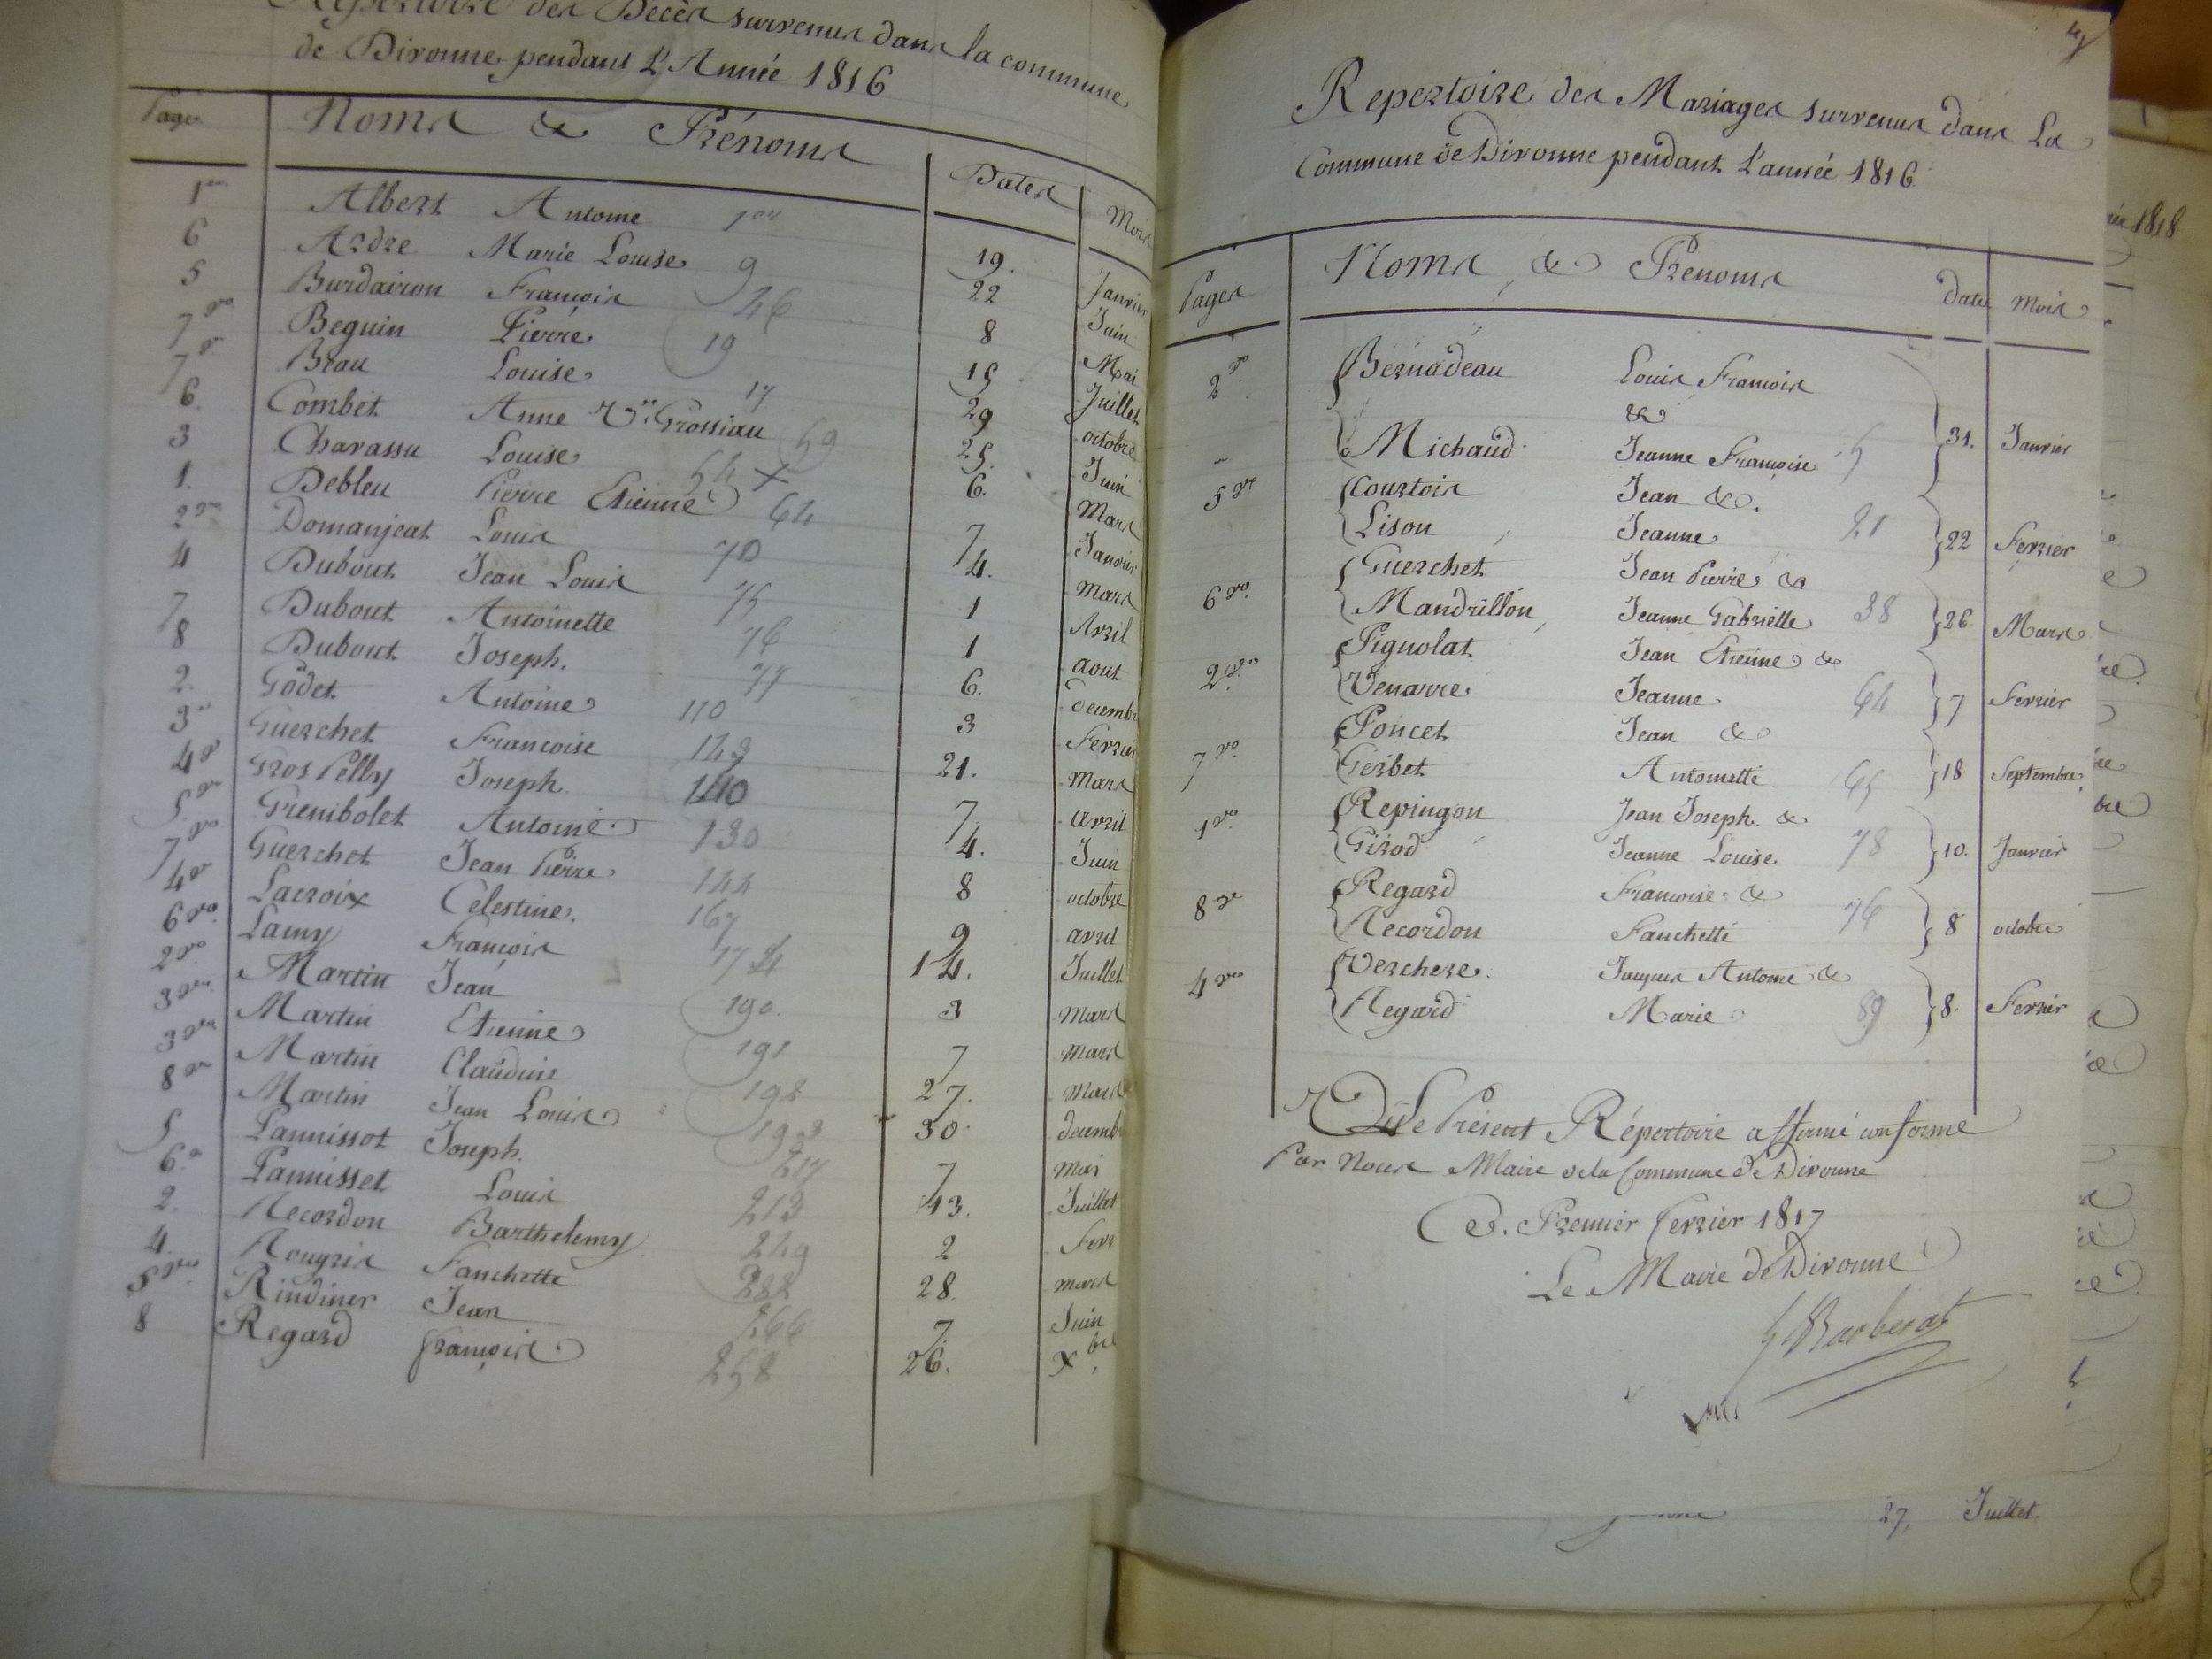 Répertoire des Decès survenus dans la commune
de Divonne pendant L'Année 1816
Page Noms & Prénoms Dates Mois
1er Albert Antoine 1er 19. Janvier
6 Ardre Marie Louise 9 22 Juin
5 Burdairon François 26 8 Mai
7 vo Beguin Pierre 19 15 Juillet
7 vo Beau Louise 17 29 octobre
6. Combet Anne Ve Grossiau 59 25. Juin
3 Charassu Louise 54 6. Mars
1. Debleu Pierre Etienne 64 7 Janvier
2 vo Domanjeat Louis 70 4. Mars
4 Dubout Jean Louis 75 1 Avril
7 Dubout Antoinette 76 1 aout
8 Dubout Joseph. 77 6. decemb
2. Godet Antoine 110 3 Fevrier
3 Guerchet Francoise 21. Mars
4 vo Gros Pelly Joseph 140 7 avril
5. vo Grenibolet Antoine 130 4. Juin
7 vo Guerchet Jean Pierre 144 8 octobre
4 vo Lacroix Celestine. 167 9 avril
6 vo Lamy François 14. Juillet
2 vo Martin Jean 190. 3 Mars
3 vo Martin Etienne 191 7 Mars
3 vo Martin Claudine 198 27. Mars
8 vo Martin Jean Louis 193 30 decemb
5 Pannissot Joseph. 217 7 Mai
6. Pannisset Louis 213 13. Juillet
2. Recordon Barthelemy 249 2 Fevr
4. Rougris Fanchette 28. mars
5 vo Rindiner Jean 266 7. Juin
8 Regard françois 258 26. Xbre
4
Repertoire des Mariages survenus dans La
Commune de Divonne pendant L'année 1816
Pages Noms & Prenoms date mois
2 vo Bernadeau Louis François
&
Michaud Jeanne Françoise 5 31. Janvier
5 vo Courtois Jean &.
Lison Jeanne 21 22 Fevrier
Guerchet Jean Pierre &
6 vo Mandrillon Jeanne Gabrielle 38 26 Mars
Pignolat Jean Etienne &
2 vo Venarre Jeanne 64 7 Fevrier
Poncet Jean &
7 vo Gerbet Antoinette. 65 18 Septembre
1 vo Repingon Jean Joseph. &
Girod Jeanne Louise 78 10. Janvier
8 vo Regard Françoise &
Recordon Fanchette 76 8 octobre
4 vo Verchere. Jacques Antoine &
Regard Marie 89 8. Fevrier
Le Présent Répertoire affirmé conforme
Par Nous Maire de la Commune de Divonne
Ce. Premier fevrier 1817
Le Maire de Divonne
Barberat
née 1818
27, Juillet.